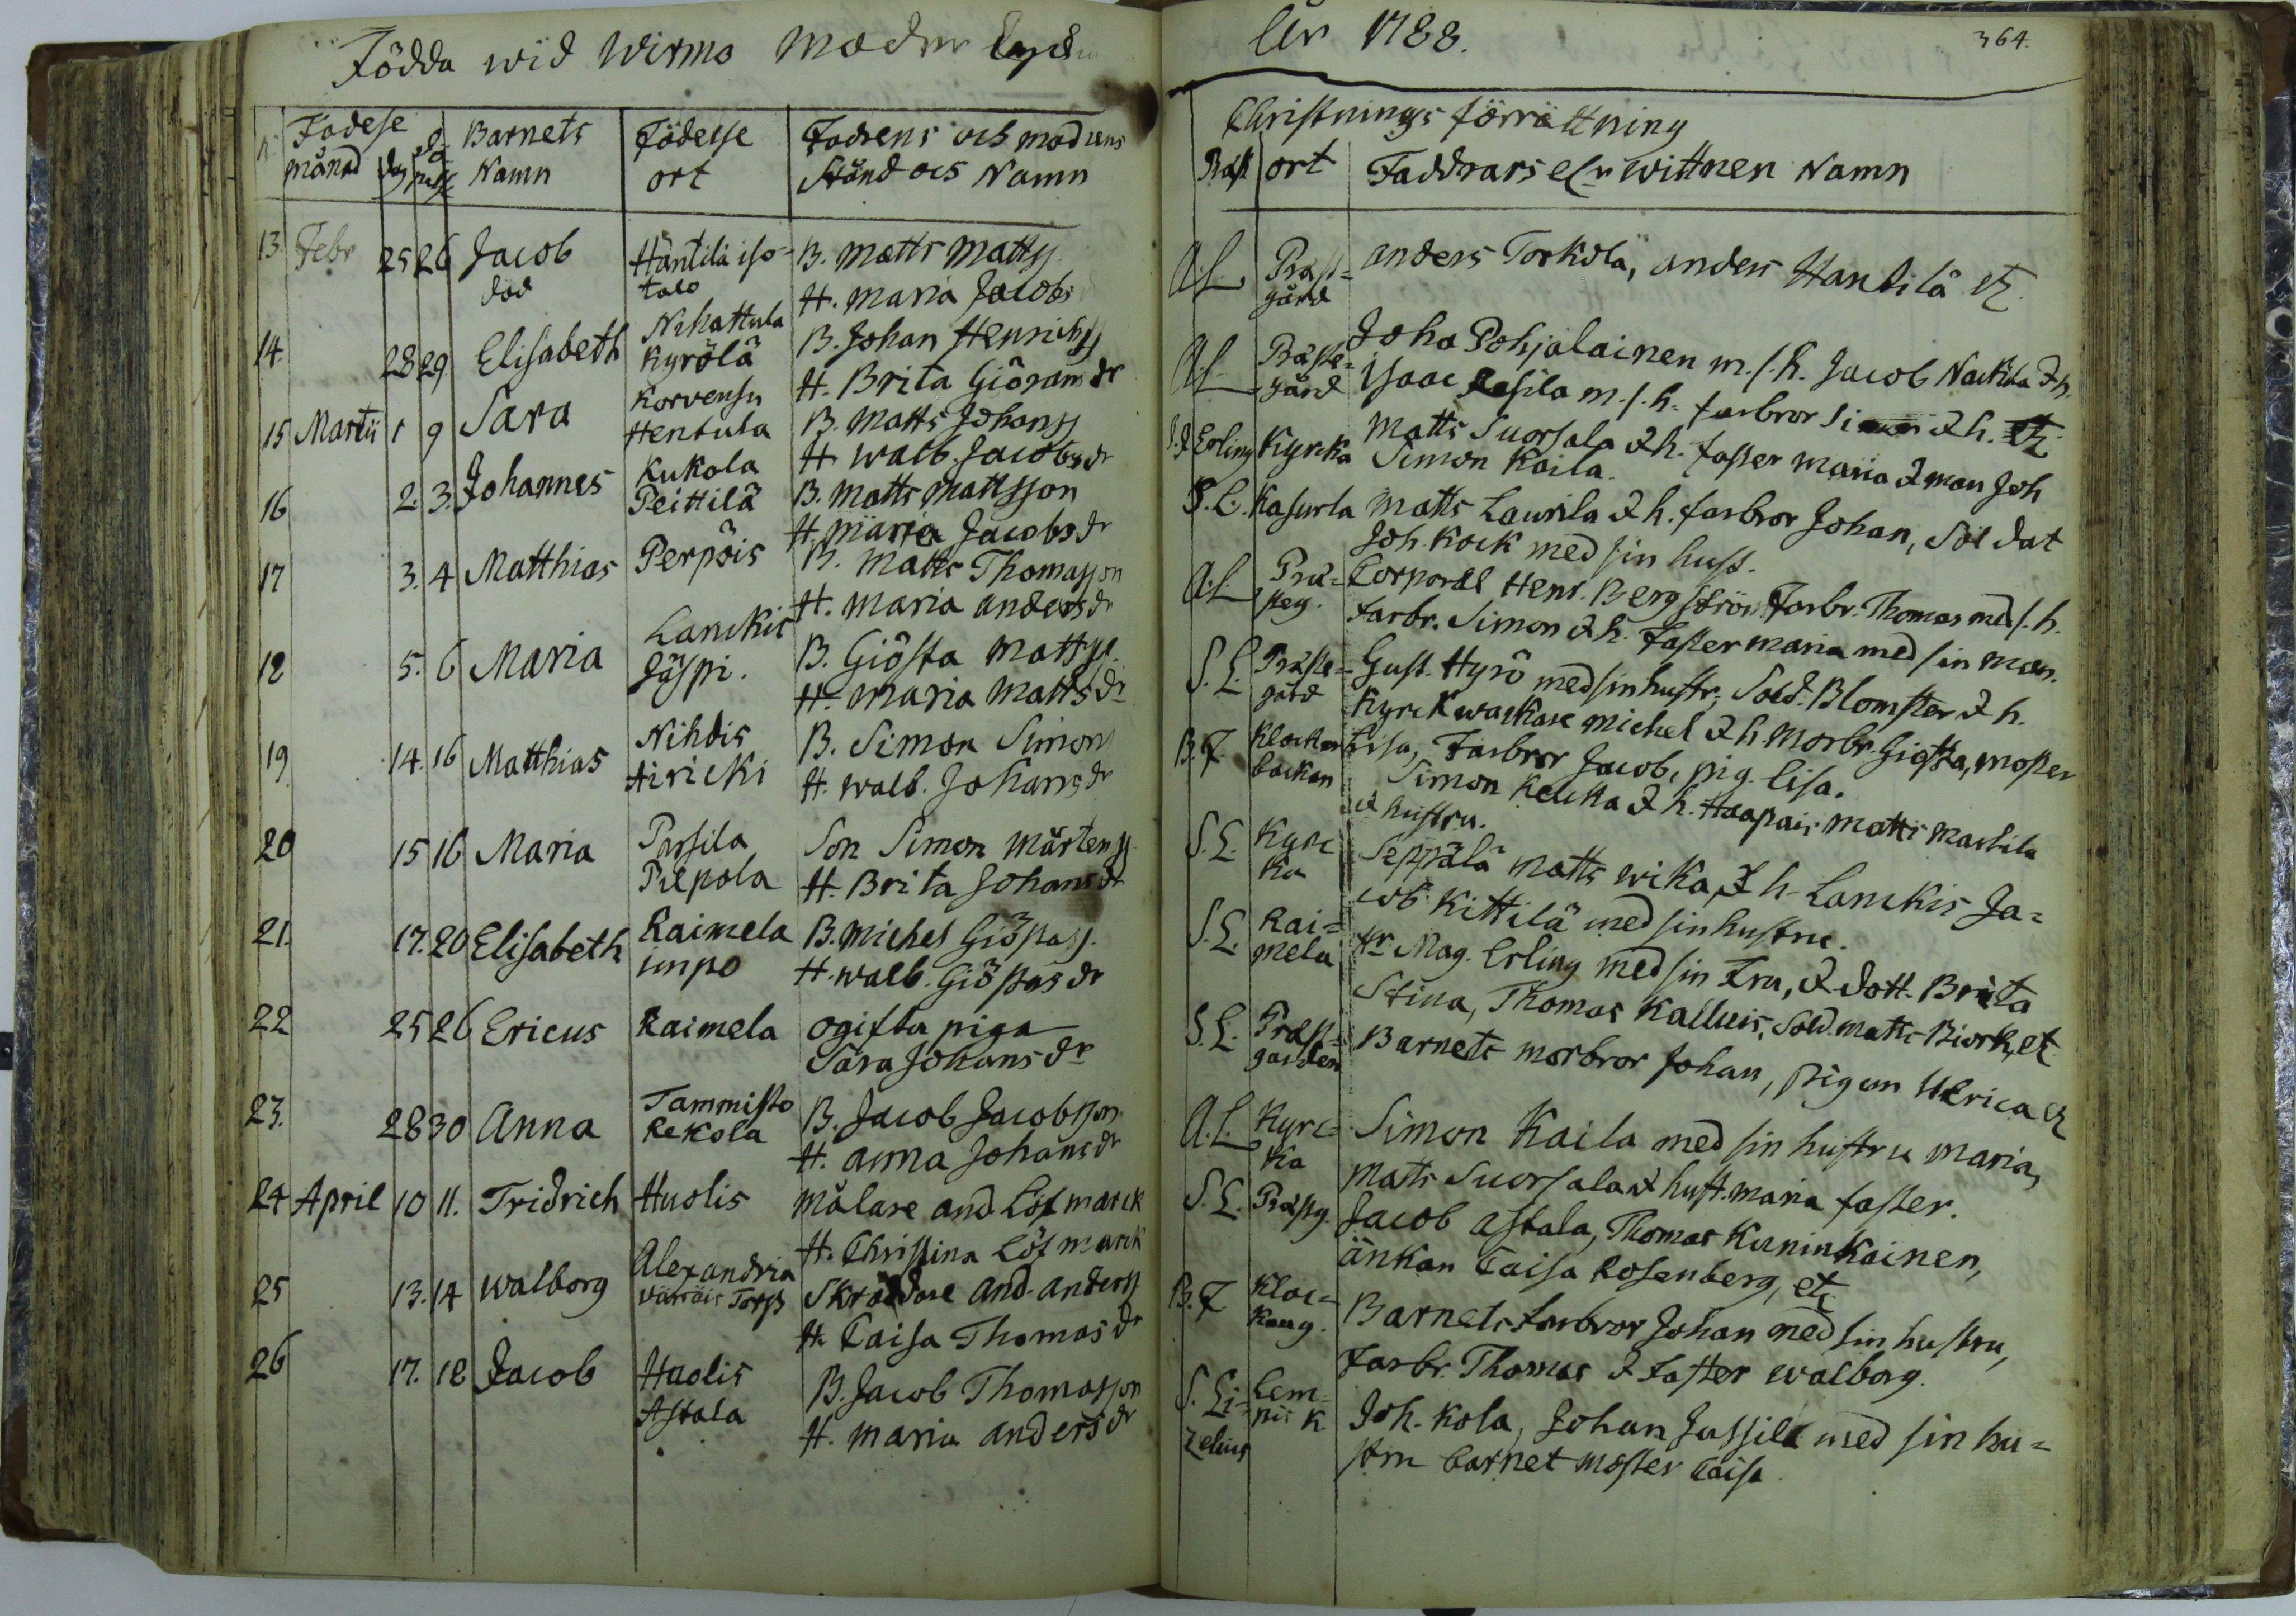 Födda wid Wirmo Moder
Födelse månad dag
Barnets Namn
Födelse ort
Fadrens och modrens Stånd och Namn
13. Febr 25 26 Jacob Häntilä iso= B. Matts Mattss
död talo H. Maria Jacobs
Nihattula
14. 28 29 Elisabeth Kyrölä B. Johan Henrichss
H. Brita Giörans dr
Korvensu
15 Martii 1 9 Sara Hentula B. Matts Johanss
H. Walb. Jacobs dr
Kukola
16 2. 3. Johannes Peittilä B. Matts Mattsson
H. Maria Jacobs dr
17 3. 4 Matthias Perpöis B. Matts Thomasson
H. Maria Anders dr
Lanckis
18 5. 6 Maria Jäspi. B. Giösta Mattss
H. Maria Matts dr
Nihdis
19 14. 16 Matthias Hiricki B. Simon Simons
H. Walb. Johans dr
20 15 16 Maria Parsila Son Simon Mårtenss
Piepola H. Brita Johans dr
21. 17. 20 Elisabeth Raimela B. Michel Giöstass.
impo H. Walb. Giöstas dr
22 25 26 Ericus Raimela ogifta piga
Sara Johans dr
23. 28 30 Anna Tammisto B. Jacob Jacobsson
Rekola H. Anna Johans dr
24 April 10 11. Fridrich Huolis målare And. Löfmarck
H. Christina Löfmarck
Alexandria
25 13. 14 Walborg Torp Skräddare And. Anderss
H. Caisa Thomas dr
26 17. 18 Jacob Huolis B. Jacob Thomasson
Astala H. Maria Anders dr
År 1788.
364.
Christnings förrättning
Präst ort Faddrars el. wittnen Namn
A.L. Präst= Anders Torkola, Anders Hantilä etc.
gård
Joha Pohjalainen m.s.h. Jacob Nackila & h.
A.L. Präste= Isaac Resila m.s.h. farbror Simon & h. etc
gård
Matts Suorsala & h. faster Maria & man Joh
Erling Kyrka Simon Kaila.
S.L. Kasurla Matts Laurila & h. farbror Johan, Soldat
Joh. Kock med sin hust.
A.L. Prä= Corporal Henr. Bergström. Farbr. Thomas med s.h.
steg. farbr. Simon & h. Faster Maria med sin man.
S.L. Präste= Gust. Hyrö med sin hustr, Sold. Blomster & h.
gård Kyrckwackare Michel & h. Morbr. Giösta, moster
B.F. Klockar Lisa, Farbror Jacob, pig. Lisa.
backan Simon Keucka & h. Haapais Matts Markila
& hustru.
S.L. Kyrc Seppälä Matts Wika, & h. Lanckis Ja=
ka cob Kittilä med sin hustru.
S.L. Rai= Hr. Mag. Erling med sin Fru, & dott. Brita
mela Stina, Thomas Kalluis, Sold. Matts Biork, etc
S.L. Präst= Barnets morbror Johan, pigan Ulrica etc
garden
A.L. Kyrc= Simon Kaila med sin hustru Maria,
ka Matts Suorsala & hust. Maria faster.
S.L. Prästg. Jacob Astala, Thomas Kuninkainen,
änkan Caisa Rosenberg, etc
B.F. Kloc= Barnets farbror Johan med sin hustru,
kaug. Farbr. Thomas & Faster Walborg.
S. Li= Lem= Joh. Kola, Johan Jussila med sin hu=
zelius pis k. stru barnet moster Caisa